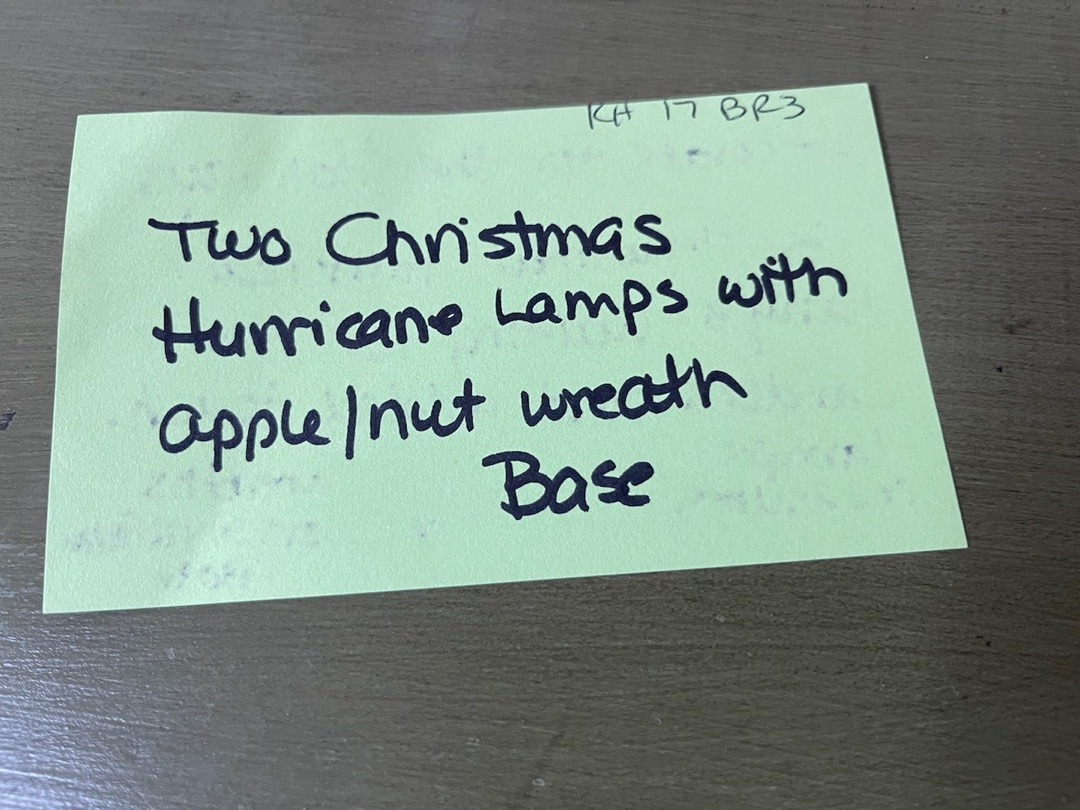 RH 17 BR3
Two Christmas
Hurricane Lamps with
apple/nut wreath
Base